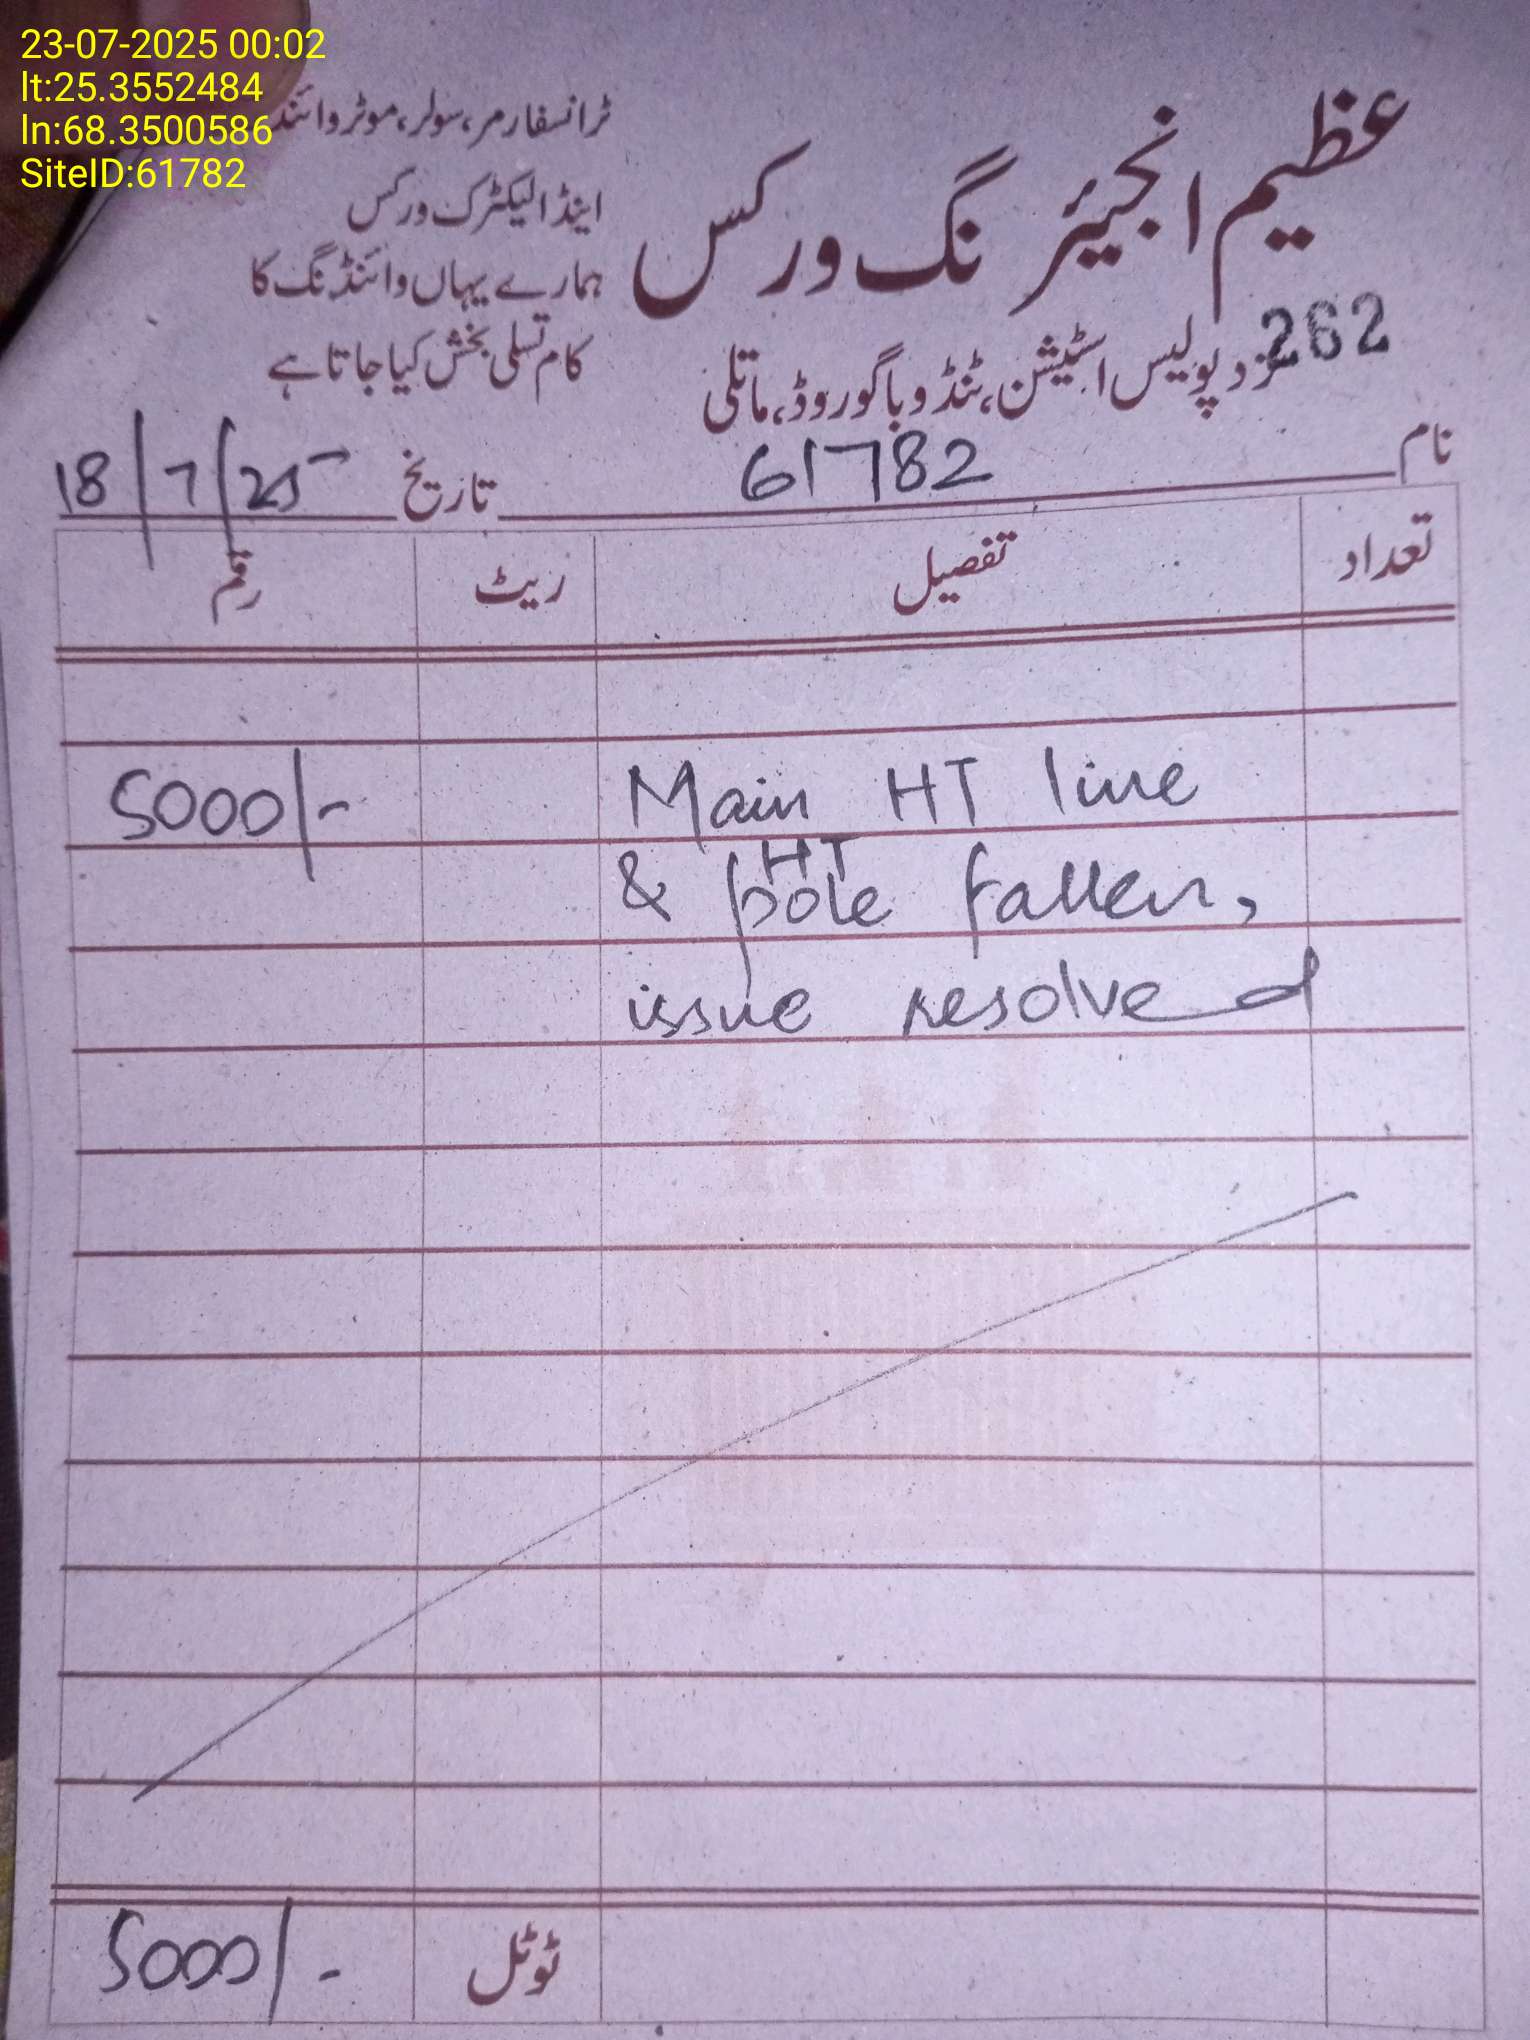 23-07-2025 00:02
lt:25.3552484
ln:68.3500586
SiteID:61782
عظیم انجیئرنگ ورکس
ٹرانسفارمر، سولر، موٹر وائنڈ
اینڈ الیکٹرک ورکس
ہمارے یہاں وائنڈنگ کا
کام تسلی بخش کیا جاتا ہے
262
نزد پولیس اسٹیشن، ٹنڈو باگو روڈ، ماتلی
نام 61782 تاریخ 18/7/25
تعداد تفصیل ریٹ رقم
Main HT line 5000/-
HT
& pole fallen,
issue resolved
ٹوٹل 5000/-